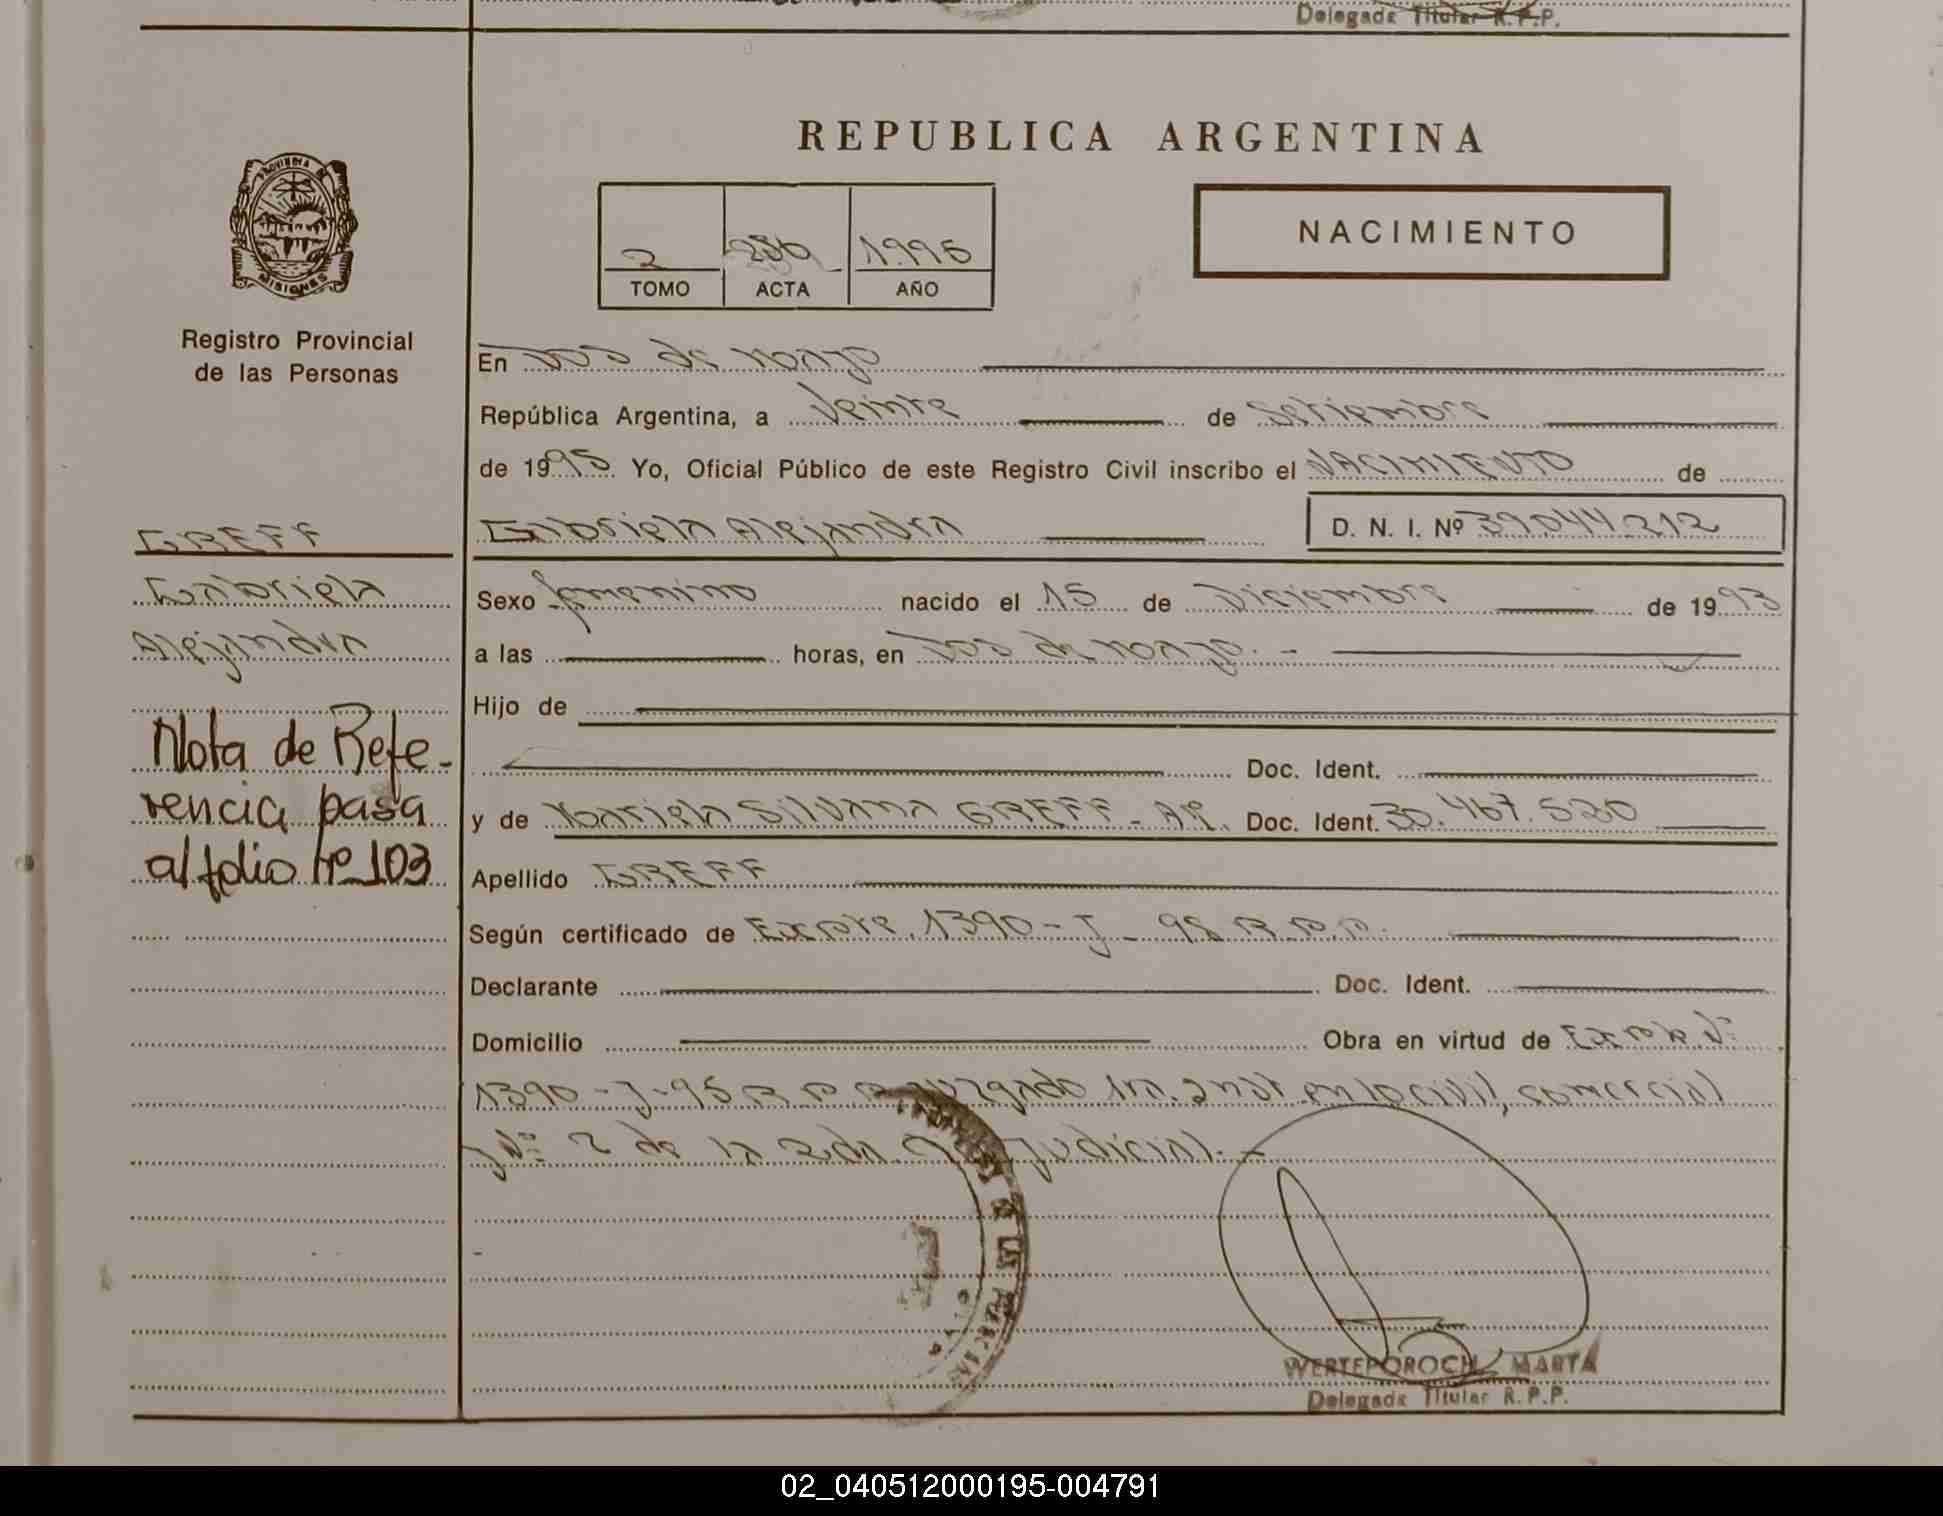 Delegada Titular R.P.P.
REPUBLICA ARGENTINA
PROVINCIA DE
MISIONES
2 280 1.995
TOMO ACTA AÑO
NACIMIENTO
Registro Provincial
de las Personas
En Dos de Mayo
República Argentina, a Veinte de Setiembre
de 1995 Yo, Oficial Público de este Registro Civil inscribo el NACIMIENTO de
GREFF
Gabriela Alejandra D. N. I. Nº 39.044.212
Gabriela
Alejandra
Sexo femenino nacido el 15 de Diciembre de 1993
a las horas, en Dos de Mayo. -
Hijo de
Nota de Refe-
rencia pasa
al folio Nº 103
Doc. Ident.
y de Mariela Silvana GREFF - AR. Doc. Ident. 30.467.520
Apellido GREFF
Según certificado de Expte. 1390 - J - 95 R.P.P.
Declarante Doc. Ident.
Domicilio Obra en virtud de Expte. Nº
1390 - J - 95 R.P.P. Juzgado 1ra. Inst. en lo civil, comercial
Nº 2 de la 2da. Judicial. -
DE LAS PERSONAS
WERTEPOROCH, MARTA
Delegada Titular R.P.P.
02_040512000195-004791